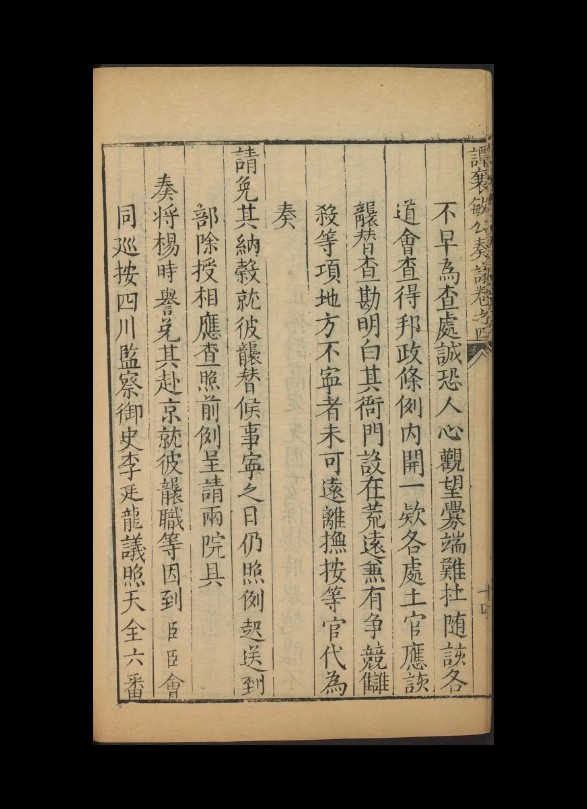 譚襄敏公奏議卷之四
十四
不早為查處誠恐人心觀望釁端難杜随該各
道會查得邦政條例内開一欵各處土官應該
襲替查勘明白其衙門設在荒遠兼有争競讎
殺等項地方不寧者未可遠離撫按等官代為
奏
請免其納穀就彼襲替候事寧之日仍照例起送到
部除授相應查照前例呈請兩院具
奏将楊時譽免其赴京就彼襲職等因到臣臣會
同巡按四川監察御史李廷龍議照天全六番